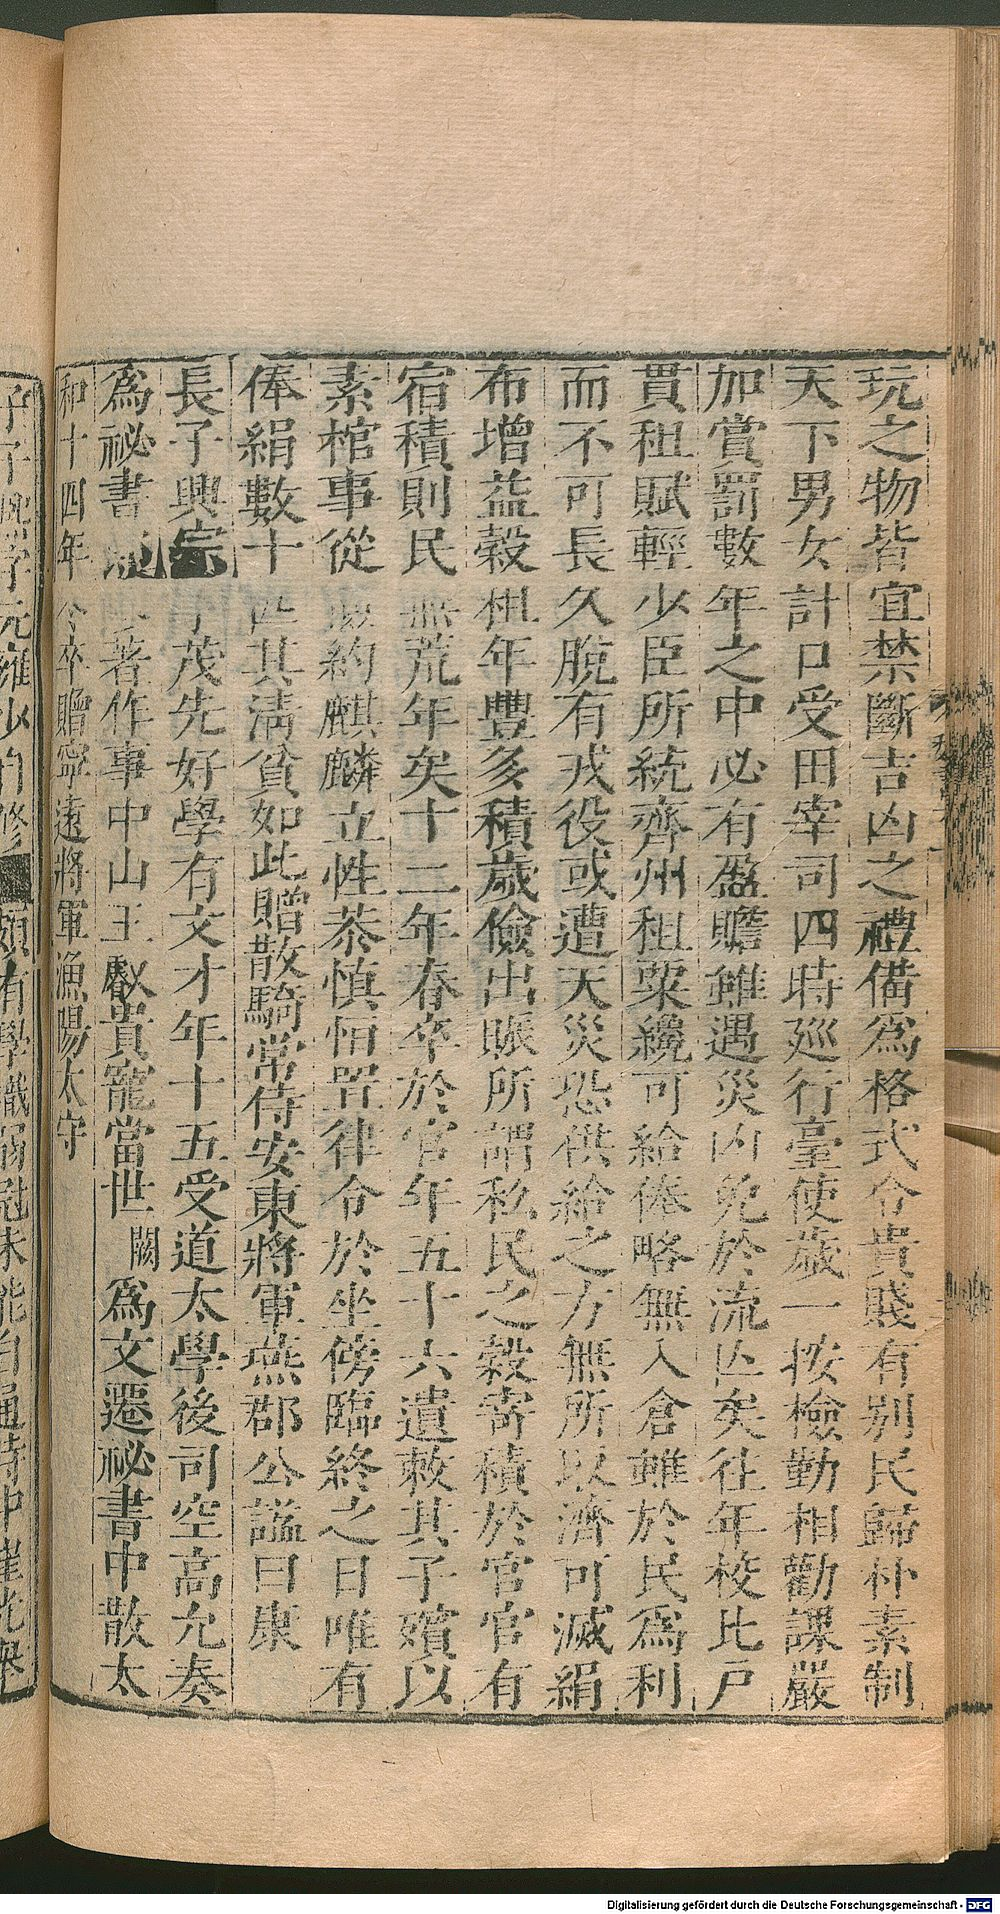 玩之物皆宜禁斷吉凶之禮備爲格式令貴賤有别民歸朴素制
天下男女計口受田宰司四時廵行臺使歳一按檢勤相勸課嚴
加賞罰數年之中必有盈贍雖遇災凶免於流亾矣往年校比戸
貫租賦輕少臣所統齊州租粟纔可給俸略無入倉雖於民爲利
而不可長久脫有戎役或遭天災恐供給之方無所以濟可減絹
布增益穀租年豐多積歳儉出賑所謂私民之穀寄積於官官有
宿積則民無荒年矣十二年春卒於官年五十六遺敕其子殯以
素棺事從儉約麒麟立性恭慎恒置律令於坐傍臨終之日唯有
俸絹數十匹其清貧如此贈散騎常侍安東將軍燕郡公謚曰康
長子興宗字茂先好學有文才年十五受道太學後司空高允奏
爲祕書 著作事中山王叡貴寵當世 闕 爲文遷祕書中散太
和十四年 卒贈寧遠將軍漁陽太守
子子熙字元雍少自修 頗有學識弱冠未能自通侍中崔光舉
Digitalisierung gefördert durch die Deutsche Forschungsgemeinschaft - DFG